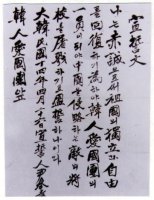 宣誓文
나는 赤誠으로써 祖國의 獨立과 自由
를 回復하기 爲하야 韓人愛國團의
一員이 되야 中國을 侵略하는 敵의 將
校를 屠戮하기로 盟誓하나이다
大韓民國十四年四月 宣誓人 尹奉
韓人愛國團앞